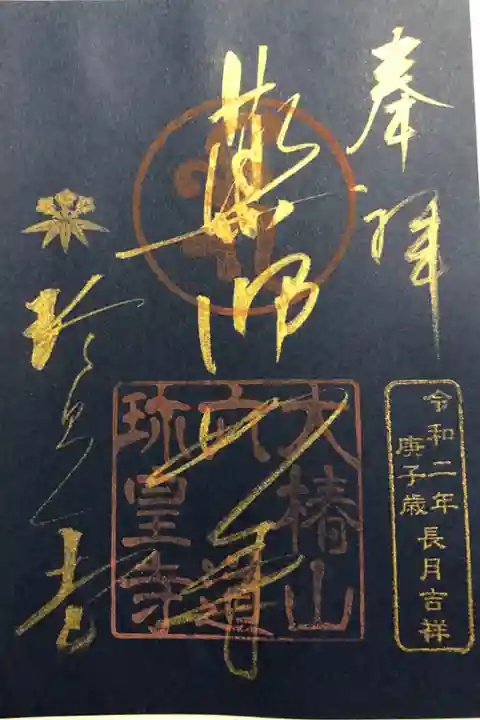 奉拝
令和二年
庚子歳
長月吉祥
薬師
大椿山
六道
珍皇寺
珍皇寺